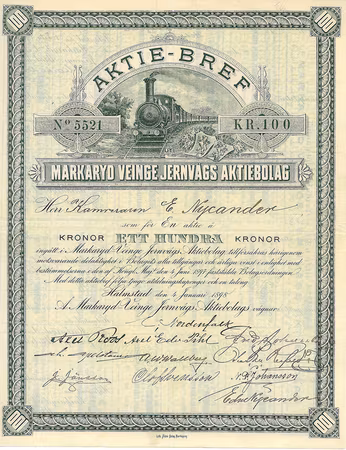 100 100
AKTIE-BREF
No 5521 KR. 100
MARKARYD VEINGE JERNVÄGS AKTIEBOLAG
Herr Kamreraren E. Nycander
som för En aktie à
KRONOR ETT HUNDRA KRONOR
ingått i Markaryd-Veinge Jernvägs Aktiebolag tillförsäkras härigenom
motsvarande delaktighet i Bolagets alla tillgångar och vinst i enlighet med
bestämmelserna i den af Kongl. Maj:t den 4 Juni 1897 fastställda Bolagsordningen.
Med detta aktiebref följa utdelningskuponger och en talong.
Halmstad den 4 Januari 1898.
Å Markaryd-Veinge Jernvägs Aktiebolags vägnar:
I. Nordenfalk
Axel Edv. Pihl
Jns Jönsson N. P. Johansson
Edm Nycander
100 100